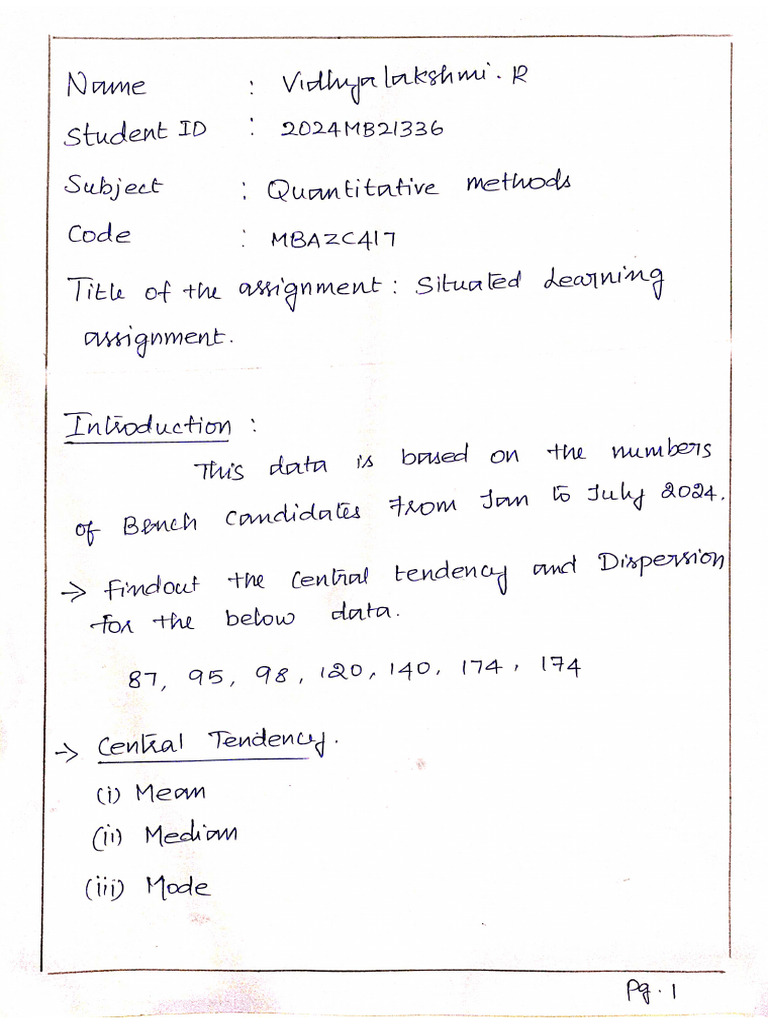 Name : Vidhyalakshmi. R
Student ID : 2024MB21336
Subject : Quantitative methods
Code : MBAZC417
Title of the assignment : Situated Learning
assignment.
Introduction :
This data is based on the numbers
of Bench candidates from Jan to July 2024.
→ Findout the central tendency and Dispersion
for the below data.
87, 95, 98, 120, 140, 174, 174
→ Central Tendency.
(i) Mean
(ii) Median
(iii) Mode
Pg. 1